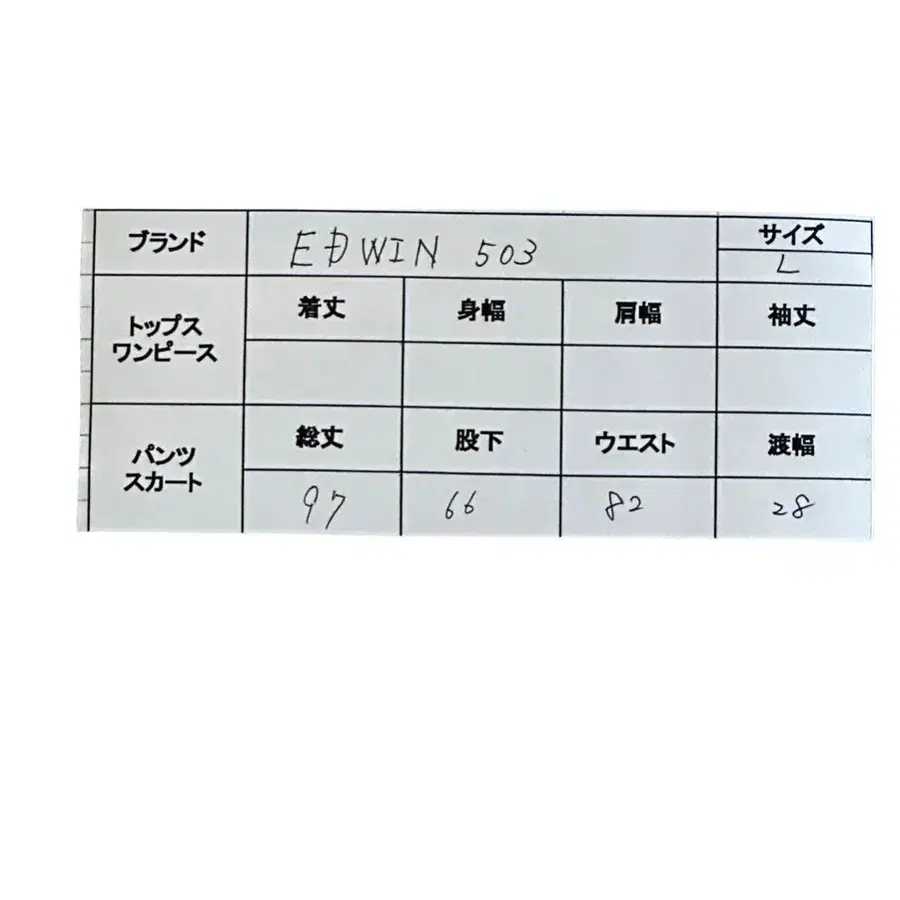 ブランド EDWIN 503 サイズ
L
トップス
ワンピース
着丈 身幅 肩幅 袖丈
パンツ
スカート
総丈 股下 ウエスト 渡幅
97 66 82 28